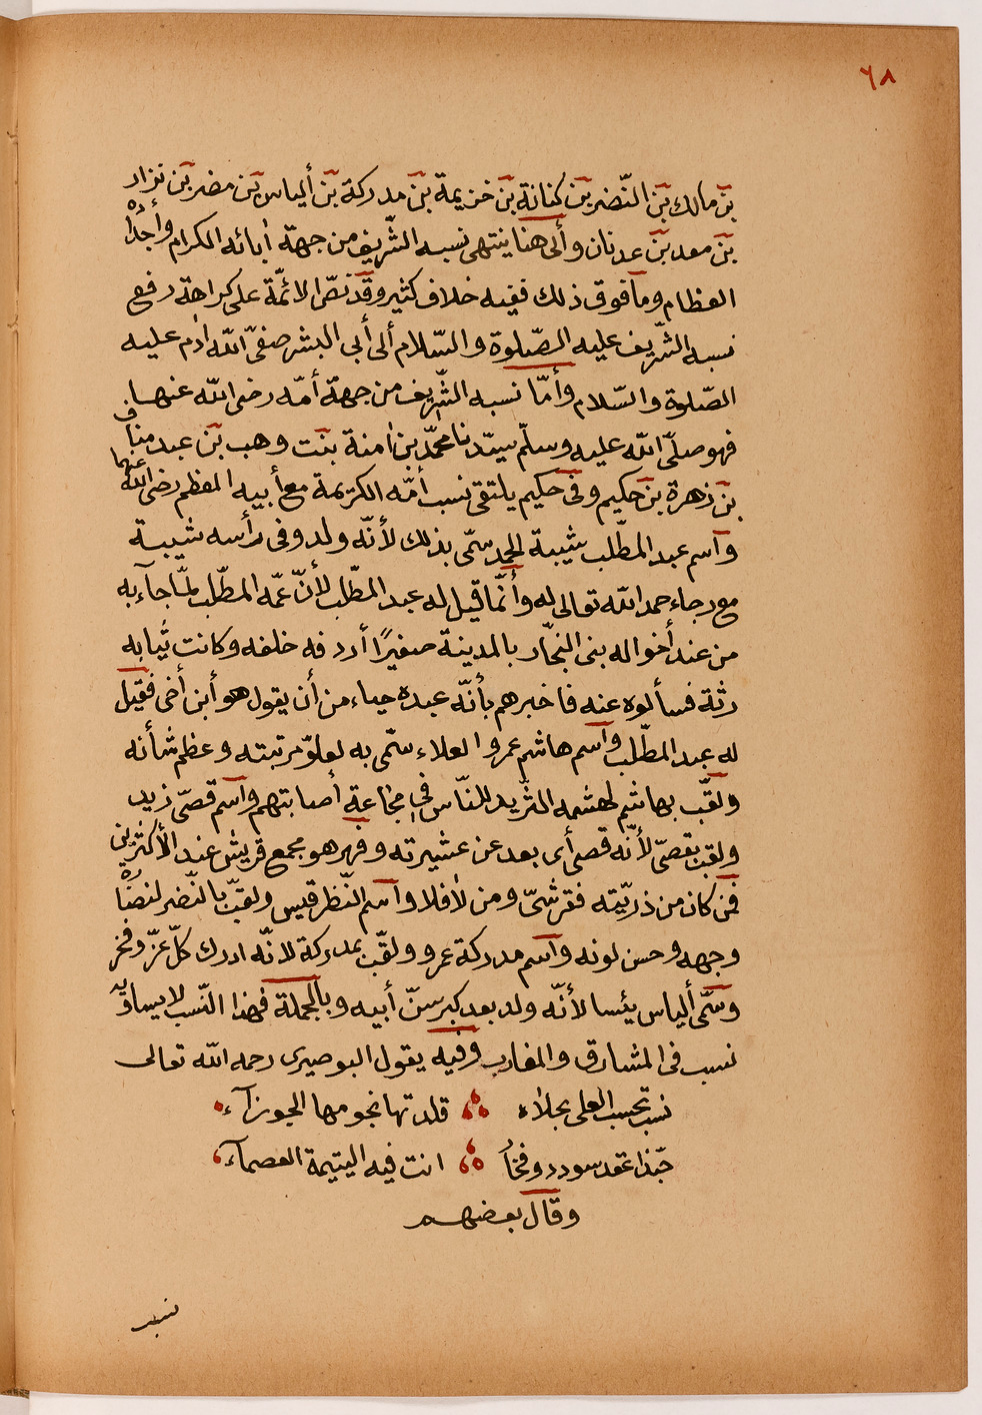 ٦٨
بن مالك بن النّضر بن كنانة بن خزيمة بن مدركة بن ألياس بن مضر بن نزار
بن معد بن عدنان وألى هنا ينتهى نسبه الشّريف من جهة أبائه الكرام وأجداده
العظام وما فوق ذلك ففيه خلاف كثير وقد نصّ الائمّة على كراهة رفع
نسبه الشّريف عليه الصّلوة والسّلام ألى أبى البشر صفىّ اللّه ادم عليه
الصّلوة والسّلام وأمّا نسبه الشّريف من جهة أمّه رضى اللّه عنها
فهو صلّى اللّه عليه وسلّم سيّدنا محمّد بن أمنة بنت وهب بن عبد مناف
بن زهرة بن حكيم وفى حكيم يلتقى نسب أمّه الكريمة مع أبيه المعظم رضى اللّه عنهما
وآسم عبد المطّلب شيبة الحمد سمّى بذلك لأنّه ولد وفى رأسه شيبة
مع رجاء حمد اللّه تعالى له وأنّما قيل له عبد المطّلب لأنّ عمّه المطّلب لمّا جآء به
من عند أخواله بنى النجّار بالمدينة صغيرًا أردفه خلفه وكانت ثيابه
رثة فسألوه عنه فاخبرهم بأنّه عبده حياء من أن يقول هو أبن أخى فقيل
له عبد المطّلب وآسم هاشم عمرو العلاء سمّى به لعلوّ مرتبته وعظم شأنه
ولقّب بهاشم لهشمه الثّريد للنّاس فى مجاعة أصابتهم وآسم قصىّ زيد
ولقب بقصىّ لأنّه قصى أى بعد عن عشيرته وفهر هو مجمع قريش عند الأكثرين
فمن كان من ذريّته فقرشىّ ومن لا فلا وآسم النّظر قيس ولقّب بالنّضر لنضارة
وجهه وحسن لونه وآسم مدركة عمرو ولقّب بمدركة لانّه ادرك كلّ عزّ وفخر
وسمّى ألياس يئسا لأنّه ولد بعد كبر سنّ أبيه وبالجملة فهذا النّسب لا يساويه
نسب فى المشارق والمغارب وفيه يقول البوصيرى رحمه اللّه تعالى
نسب تحسب العلى بحلاه قلدتها نجومها الجوزآء
حبّذا عقد سودد وفخار انت فيه اليتيمة العصمآء
وقال بعضهم